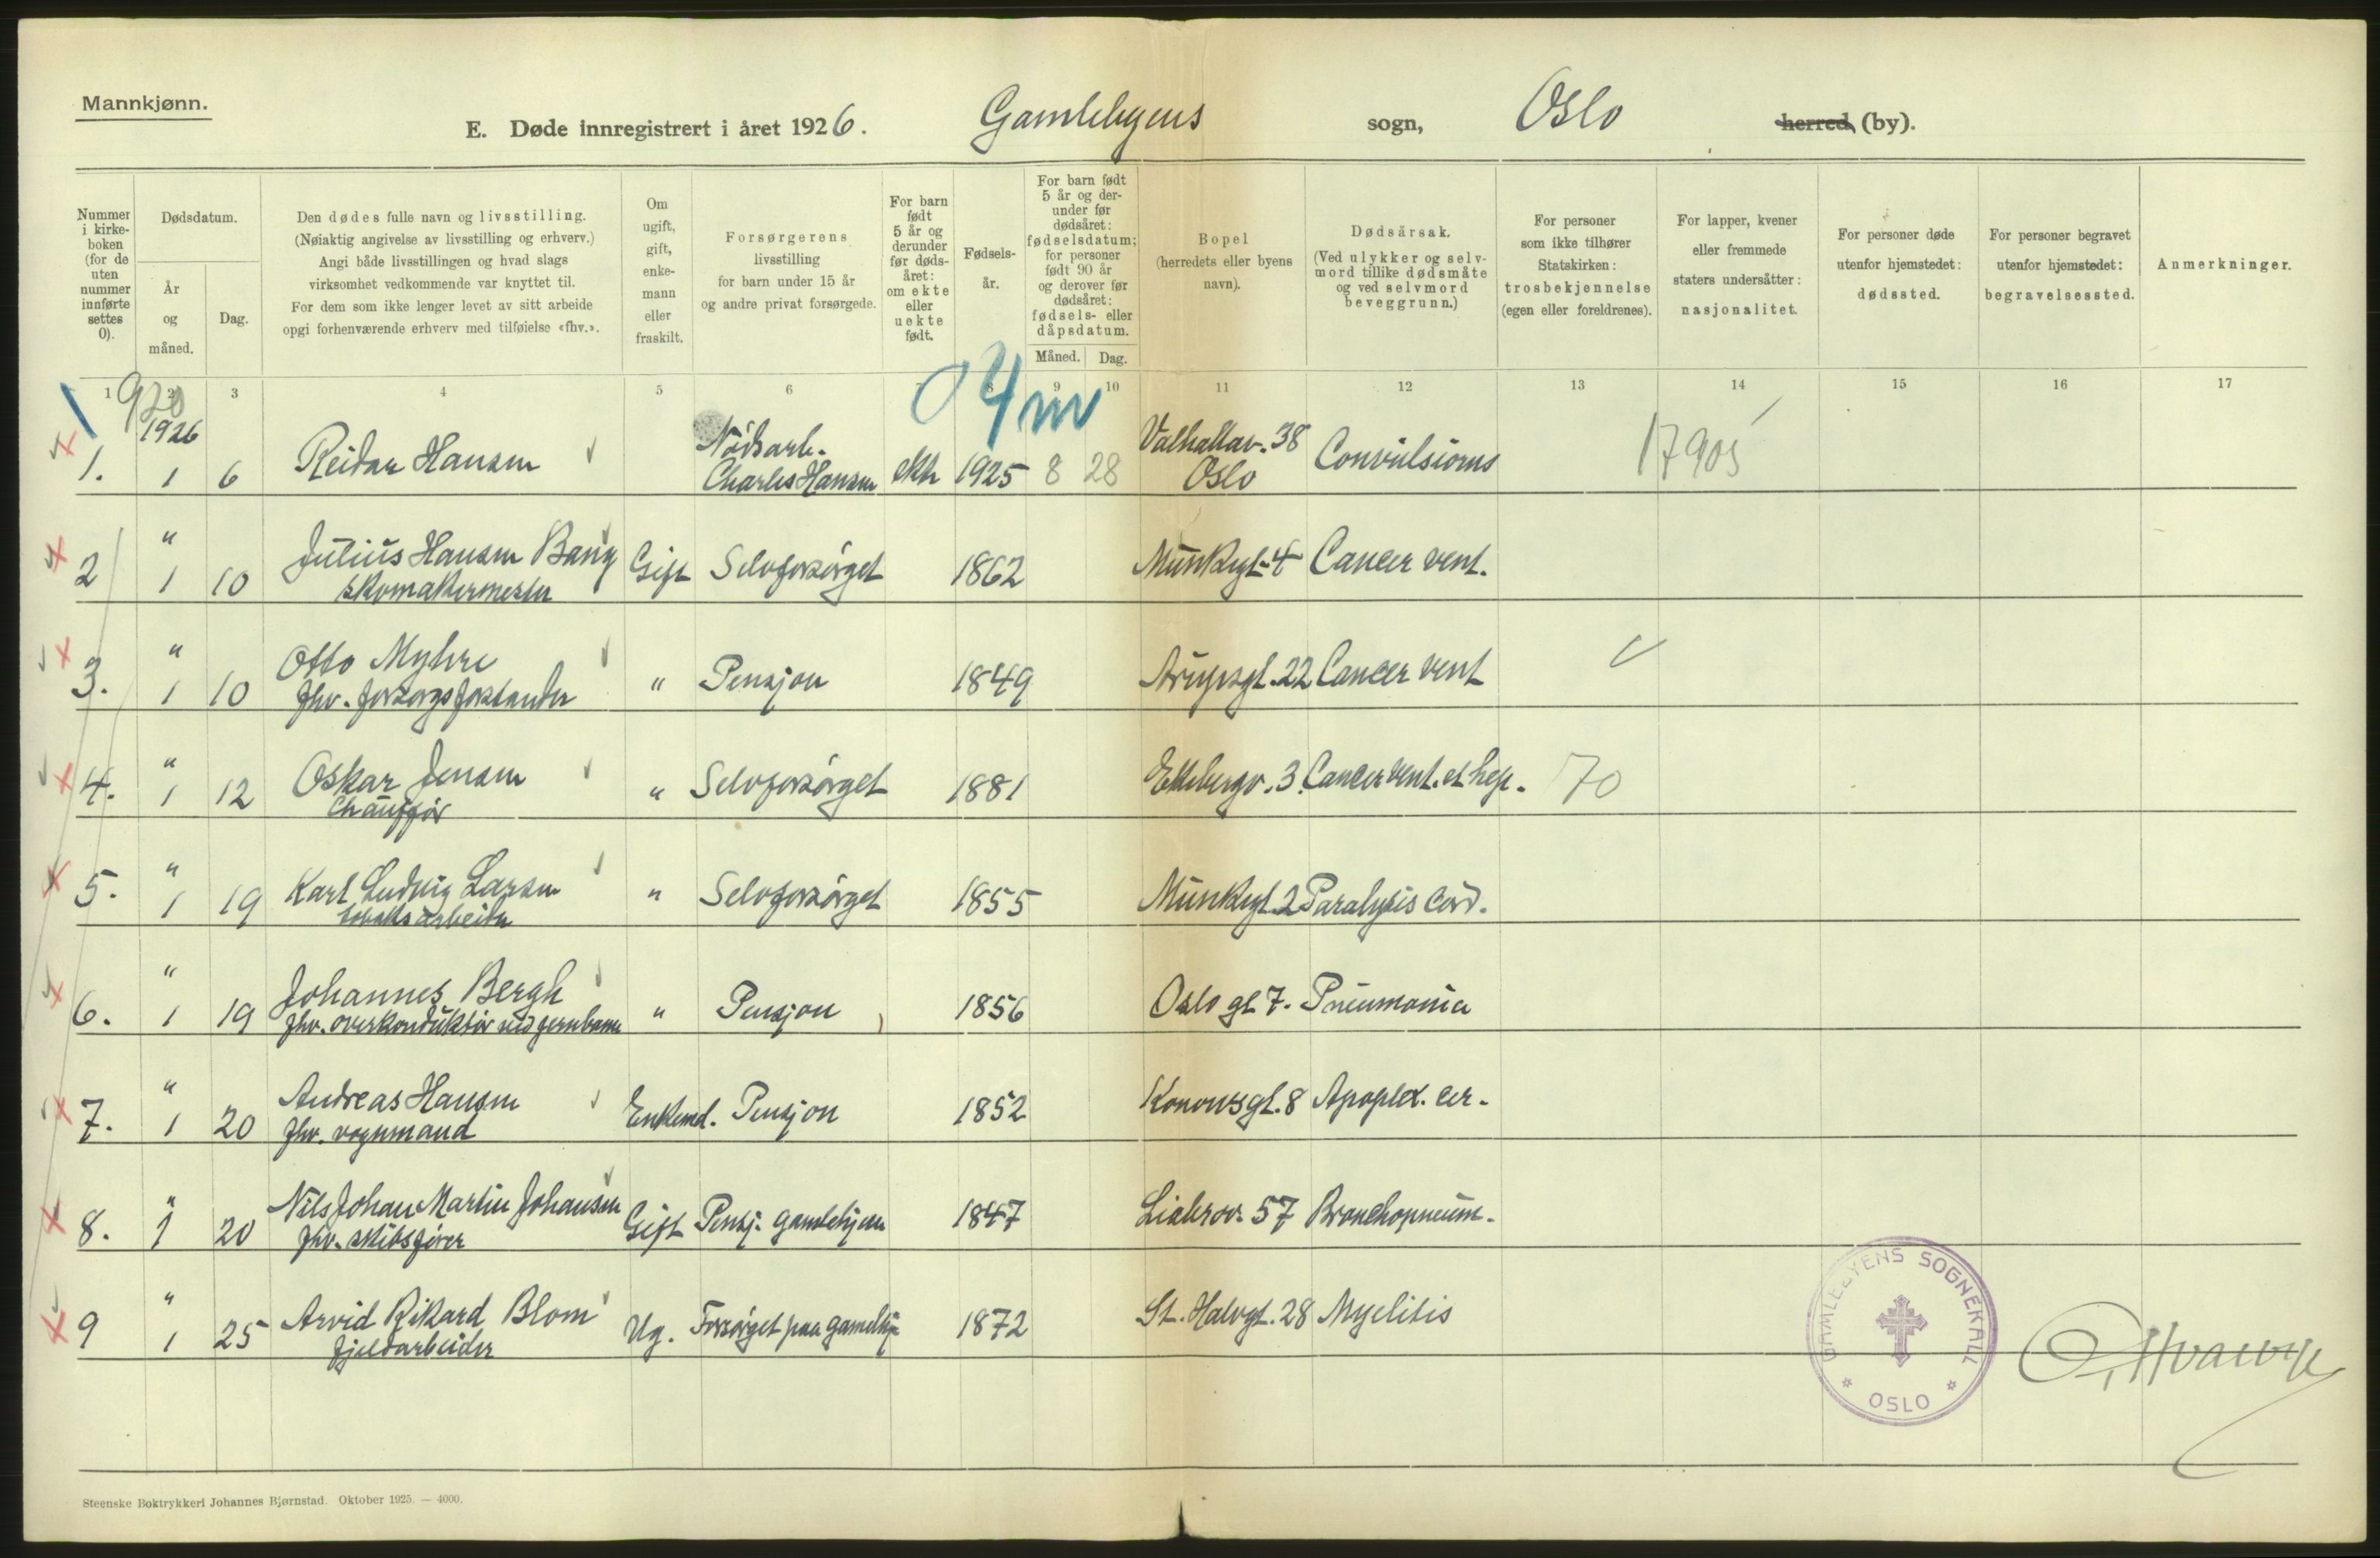 Mannkjønn.
E. Døde innregistrert i året 1926. Gamlebyens sogn, Oslo herred, (by).
Nummer i kirke-boken (for de uten nummer innførte settes 0).
Dødsdatum.
År og måned.
Dag.
Den dødes fulle navn og livsstilling.
(Nøiaktig angivelse av livsstilling og erhverv.)
Angi både livsstillingen og hvad slags
virksomhet vedkommende var knyttet til.
For dem som ikke lenger levet av sitt arbeide
opgi forhenværende erhverv med tilføielse «fhv.».
Om ugift, gift, enke-mann eller fraskilt.
Forsørgerens
livsstilling
for barn under 15 år
og andre privat forsørgede.
For barn født 5 år og derunder før døds-året: om ekte eller uekte født.
Fødsels-år.
For barn født 5 år og der-under før dødsåret: fødselsdatum; for personer født 90 år og derover før dødsåret: fødsels- eller dåpsdatum.
Måned. Dag.
Bopel
(herredets eller byens
navn).
Dødsårsak.
(Ved ulykker og selv-
mord tillike dødsmåte
og ved selvmord
beveggrunn.)
For personer
som ikke tilhører
Statskirken:
trosbekjennelse
(egen eller foreldrenes).
For lapper, kvener
eller fremmede
staters undersåtter:
nasjonalitet.
For personer døde
utenfor hjemstedet:
dødssted.
For personer begravet
utenfor hjemstedet:
begravelsessted.
Anmerkninger.
1 2 3 4 5 6 7 8 9 10 11 12 13 14 15 16 17
1926
1. 1 6 Reidar Hansen Nødsarb. Charles Hansen ekte 1925 8 28 Valhallav. 38 Oslo Convulsiones 17905
2 " 1 10 Julius Hansen Bang Gift Selvforsørget 1862 Munkegt. 4 Cancer vent.
skomakermester
3. " 1 10 Otto Myhre " Pensjon 1849 Arupsgt. 22 Cancer vent
fhv. forsorgsforstander
4. " 1 12 Oskar Jensen " Selvforsørget 1881 Ekebergv. 3. Cancer vent. et hep. 70
Chauffør
5. " 1 19 Karl Ludvig Larsen " Selvforsørget 1855 Munkegt. 2 Paralysis cord.
tobaksarbeider
6. " 1 19 Johannes Bergh " Pensjon 1856 Oslo gt 7. Pneumonia
fhv. overkonduktør ved jernbanen
7. " 1 20 Andreas Hansen Enkemd. Pensjon 1852 Konowsgt. 8 Apoplex. cer.
fhv. vognmand
8. " 1 20 Nils Johan Martin Johansen Gift Pensj. gamlehjem 1847 Liabrov. 57 Bronchopneum.
fhv. skibsfører
9 " 1 25 Arvid Rikard Blom Ug. Forsørget paa gamlehj. 1872 St. Halvgt. 28 Myelitis
fjeldarbeider
GAMLEBYENS SOGNEKALL
* OSLO *
Steenske Boktrykkeri Johannes Bjørnstad. Oktober 1925. — 4000.